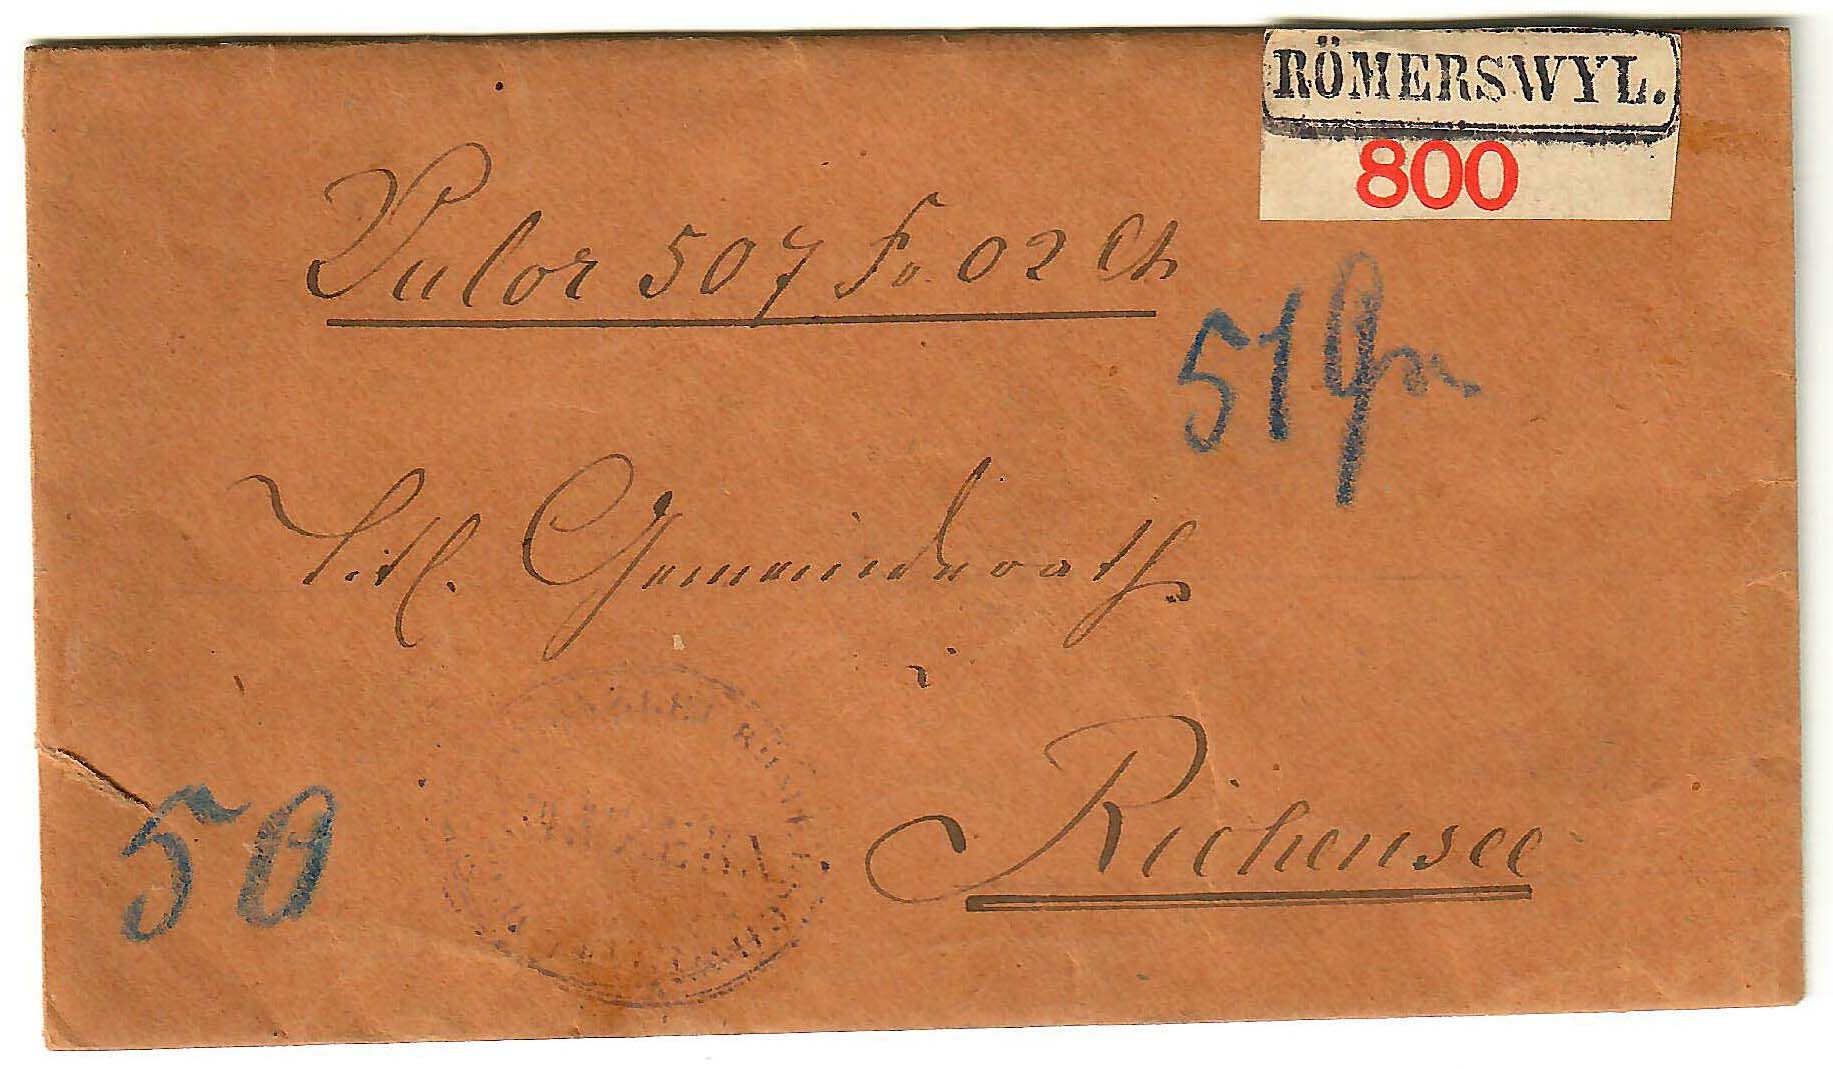 RÖMERSWYL.
800
Valor 507 Fr. 02 Ct
51 Gr
Titl. Gemeinderath
i
Richensee
50